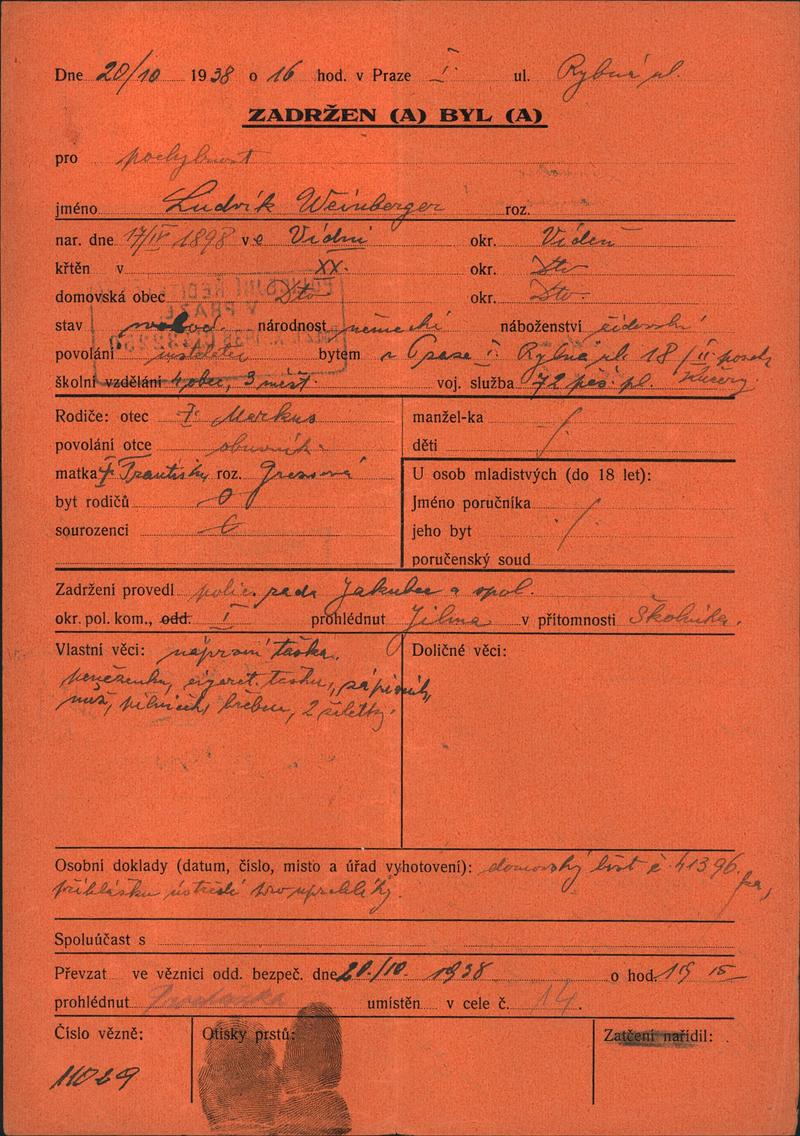 Dne 20/10 1938 o 16 hod. v Praze I. ul. Rybná ul.
ZADRŽEN (A) BYL (A)
pro pochybnost
jméno Ludvík Weinberger roz.
nar. dne 17/IV 1898 ve Vídni okr. Vídeň
křtěn v XX. okr. Dto
domovská obec Dto okr. Dto.
stav národnost německá náboženství židovské
povolání bytem v Praze I. Rybná ul. 18/II
školní vzdělání 4 obec, 3 měšť. voj. služba 72 pěš. pl.
Rodiče: otec Markus manžel-ka
povolání otce obuvník děti
matka roz. U osob mladistvých (do 18 let):
byt rodičů Jméno poručníka
sourozenci jeho byt
poručenský soud
Zadržení provedl polic. rada Jakubec a spol.
okr. pol. kom., odd. I prohlédnut Jilma v přítomnosti Školníka.
Vlastní věci: taška, Doličné věci:
cigaret. tašku, zápisník,
nůž, hřeben, 2 žiletky.
Osobní doklady (datum, číslo, místo a úřad vyhotovení): domovský list č. 41396
přihlášku ústředí pro uprchlíky.
Spoluúčast s
Převzat ve věznici odd. bezpeč. dne 20./10. 1938 o hod. 19 15
prohlédnut umístěn v cele č. 14.
Číslo vězně: Otisky prstů: Zatčení nařídil:
11029